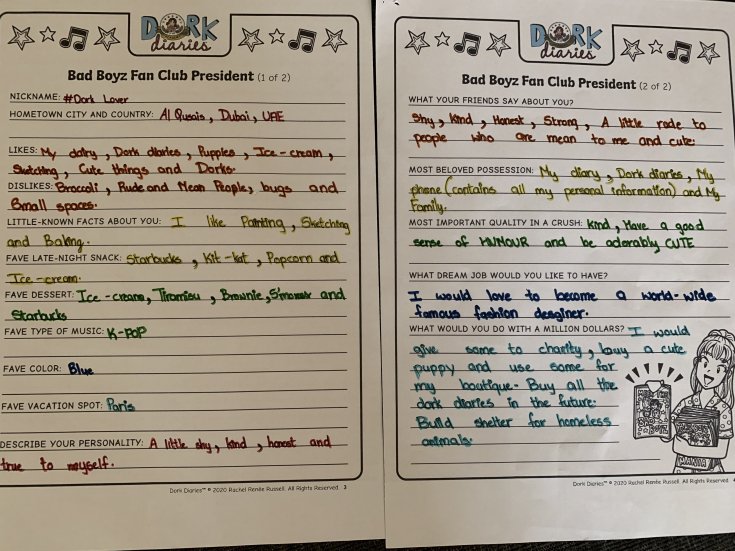 DORK
diaries
Bad Boyz Fan Club President (1 of 2)
NICKNAME: #Dork Lover
HOMETOWN CITY AND COUNTRY: Al Qusais, Dubai, UAE
LIKES: My dairy, Dork diaries, Puppies, Ice-cream,
Sketching, Cute things and Dorks.
DISLIKES: Broccoli, Rude and Mean People, bugs and
Small spaces.
LITTLE-KNOWN FACTS ABOUT YOU: I like Painting, Sketching
and Baking.
FAVE LATE-NIGHT SNACK: Starbucks, Kit-kat, Popcorn and
Ice-cream.
FAVE DESSERT: Ice-creame, Tiramisu, Brownie, S'mores and
Starbucks
FAVE TYPE OF MUSIC: K-POP
FAVE COLOR: Blue
FAVE VACATION SPOT: Paris
DESCRIBE YOUR PERSONALITY: A little shy, kind, honest and
true to myself.
Dork Diaries™ © 2020 Rachel Renée Russell. All Rights Reserved. 3
DORK
diaries
Bad Boyz Fan Club President (2 of 2)
WHAT YOUR FRIENDS SAY ABOUT YOU?
Shy, Kind, Honest, Strong, A little rude to
people who are mean to me and cute.
MOST BELOVED POSSESSION: My diary, Dork diaries, My
phone (contains all my personal information) and My
Family.
MOST IMPORTANT QUALITY IN A CRUSH: Kind, Have a good
sense of HUMOUR and be aderably CUTE
WHAT DREAM JOB WOULD YOU LIKE TO HAVE?
I would love to become a world-wide
famous fashion desginer.
WHAT WOULD YOU DO WITH A MILLION DOLLARS? I would
give some to charity, buy a cute
puppy and use some for
my boutique. Buy all the
dork diaries in the future.
Build shelter for homeless
animals.
MANIA
Dork Diaries™ © 2020 Rachel Renée Russell. All Rights Reserved. 4